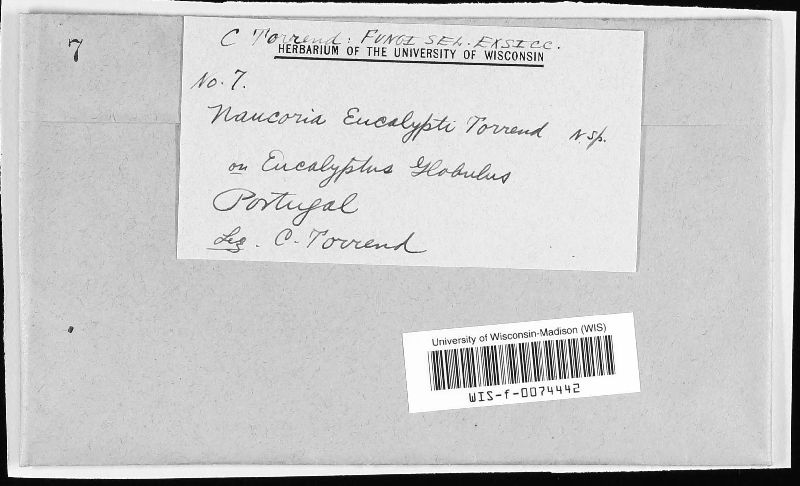 7
C Torrend: FUNGI SEL. EXSICC.
HERBARIUM OF THE UNIVERSITY OF WISCONSIN
No. 7.
Naucoria Eucalypti Torrend N. sp.
on Eucalyptus Globulus
Portugal
Leg. C. Torrend
University of Wisconsin-Madison (WIS)
WIS-f-0074442